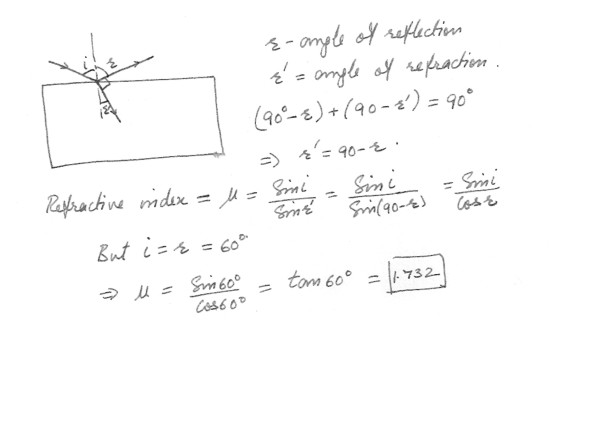 i r
r'
r - angle of reflection
r' = angle of refraction.
(90° - r) + (90 - r') = 90°
⇒ r' = 90 - r.
Refractive index = μ = Sin i / Sin r' = Sin i / Sin(90-r) = Sin i / Cos r
But i = r = 60°
⇒ μ = Sin 60° / Cos 60° = tan 60° = 1.732